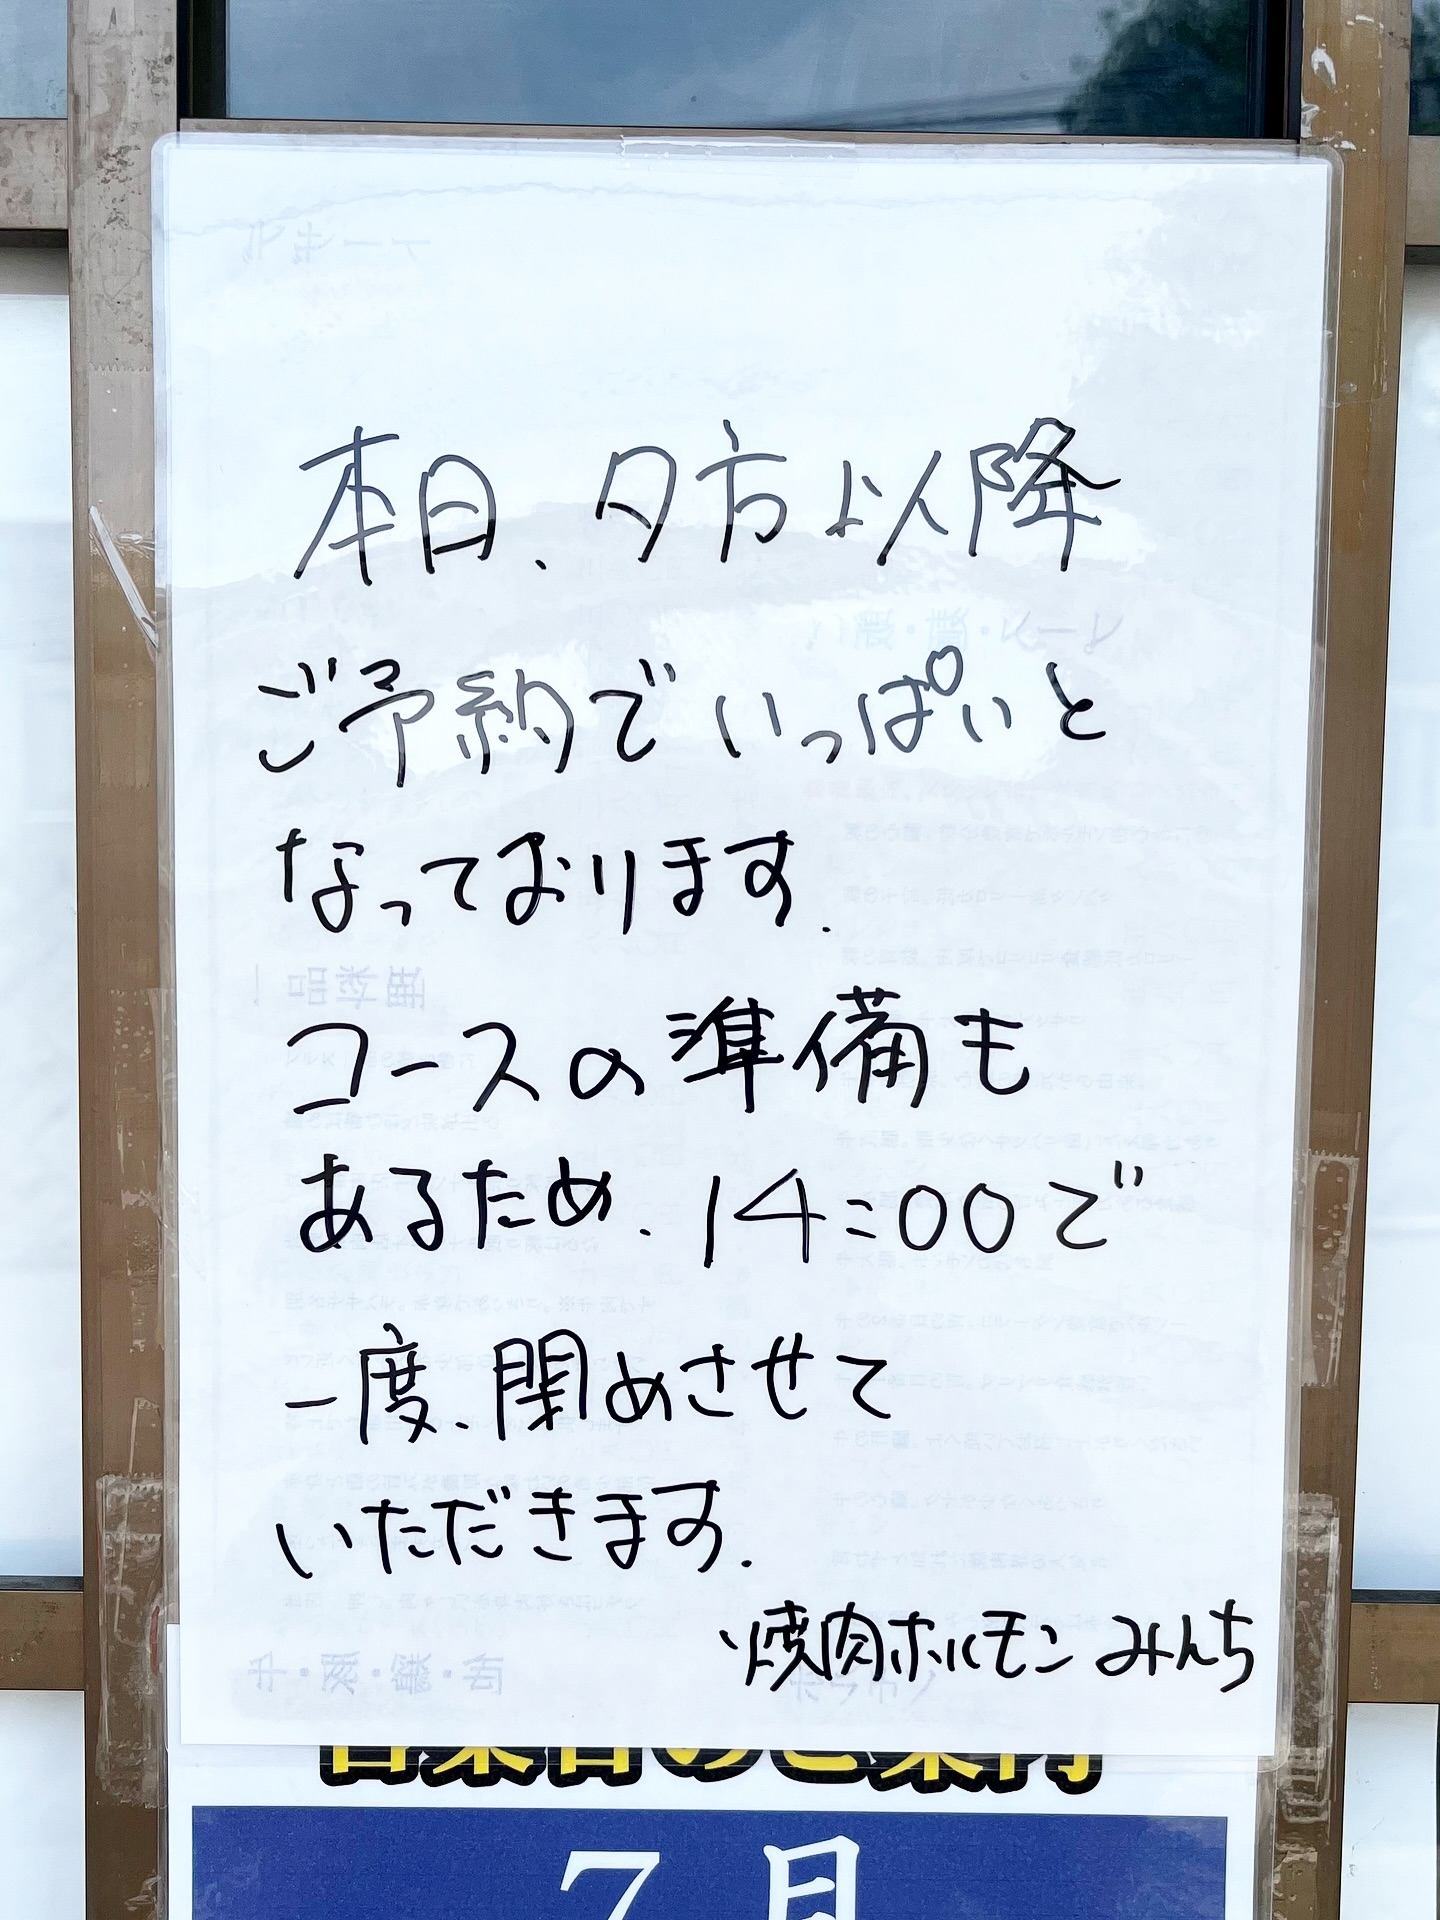 本日、夕方以降
ご予約でいっぱいと
なっております.
コースの準備も
あるため、14:00で
一度、閉めさせて
いただきます.
焼肉ホルモン みんち
営業日のご案内
7月